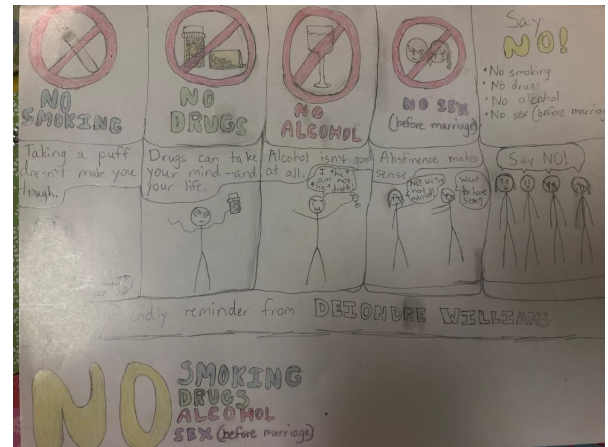 NO
SMOKING
NO
DRUGS
NO
ALCOHOL
NO SEX
(before marriage)
Say
NO!
• No smoking
• No drugs
• No alcohol
• No sex (before marriage
Taking a puff
doesn't make you
tough.
Drugs can take
your mind - and
your life.
Alcohol isn't good
at all.
I *hic*
am not
*hic* drunk!
Abstinence makes
sense.
NO! We're
not
married!
Want
to have
sex?
Say NO!
ndly reminder from DEIONDRE WILLIAMS
NO
SMOKING
DRUGS
ALCOHOL
SEX (before marriage)